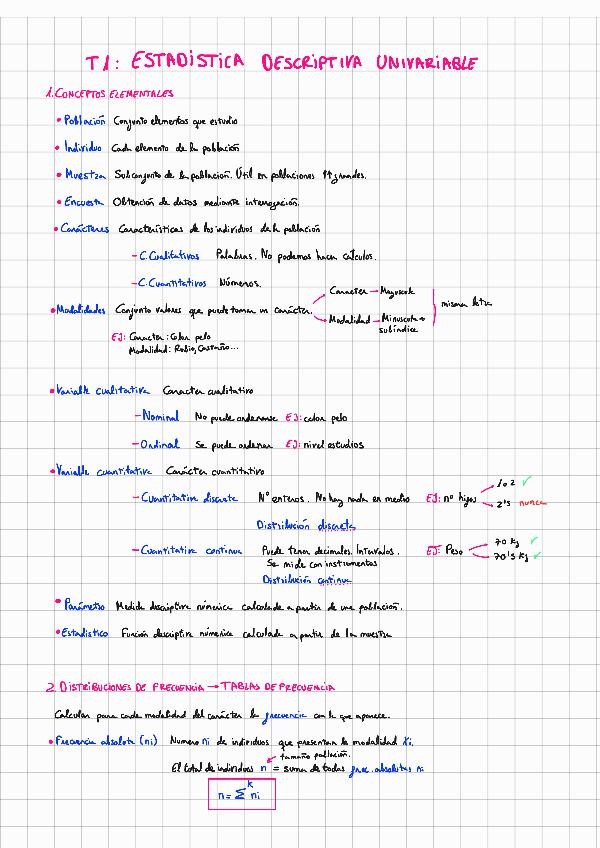 T1: ESTADÍSTICA DESCRIPTIVA UNIVARIABLE
1. CONCEPTOS ELEMENTALES
• Población Conjunto elementos que estudio
• Individuo Cada elemento de la población
• Muestra Subconjunto de la población. Útil en poblaciones ↑↑grandes.
• Encuesta Obtención de datos mediante interrogación.
• Carácteres Características de los individuos de la población
- C.Cualitativos Palabras. No podemos hacer cálculos.
- C.Cuantitativos Números.
• Modalidades Conjunto valores que puede tomar un carácter.
Caracter → Mayuscula
Modalidad → Minuscula +
subíndice
misma letra
EJ: Caracter: Color pelo
Modalidad: Rubio, Castaño...
• Variable cualitativa Caracter cualitativo
- Nominal No puede ordenarse EJ: color pelo
- Ordinal Se puede ordenar EJ: nivel estudios
• Variable cuantitativa Carácter cuantitativo
- Cuantitativa discreta Nº enteros. No hay nada en medio EJ: nº hijos
1 o 2 ✓
2'5 nunca
Distribución discreta
- Cuantitativa continua Puede tener decimales. Intervalos. EJ: Peso
70 kg ✓
70'5 kg ✓
Se mide con instrumentos
Distribución continua
• Parámetro Medida descriptiva númerica calculada a partir de una población.
• Estadístico Función descriptiva númerica calculada a partir de la muestra
2. DISTRIBUCIONES DE FRECUENCIA → TABLAS DE FRECUENCIA
Calcular para cada modalidad del carácter la frecuencia con la que aparece.
• Frecuencia absoluta (ni) Número ni de individuos que presentan la modalidad Xi.
tamaño población.
El total de individuos n = suma de todas frec. absolutas ni
n = Σ^k ni